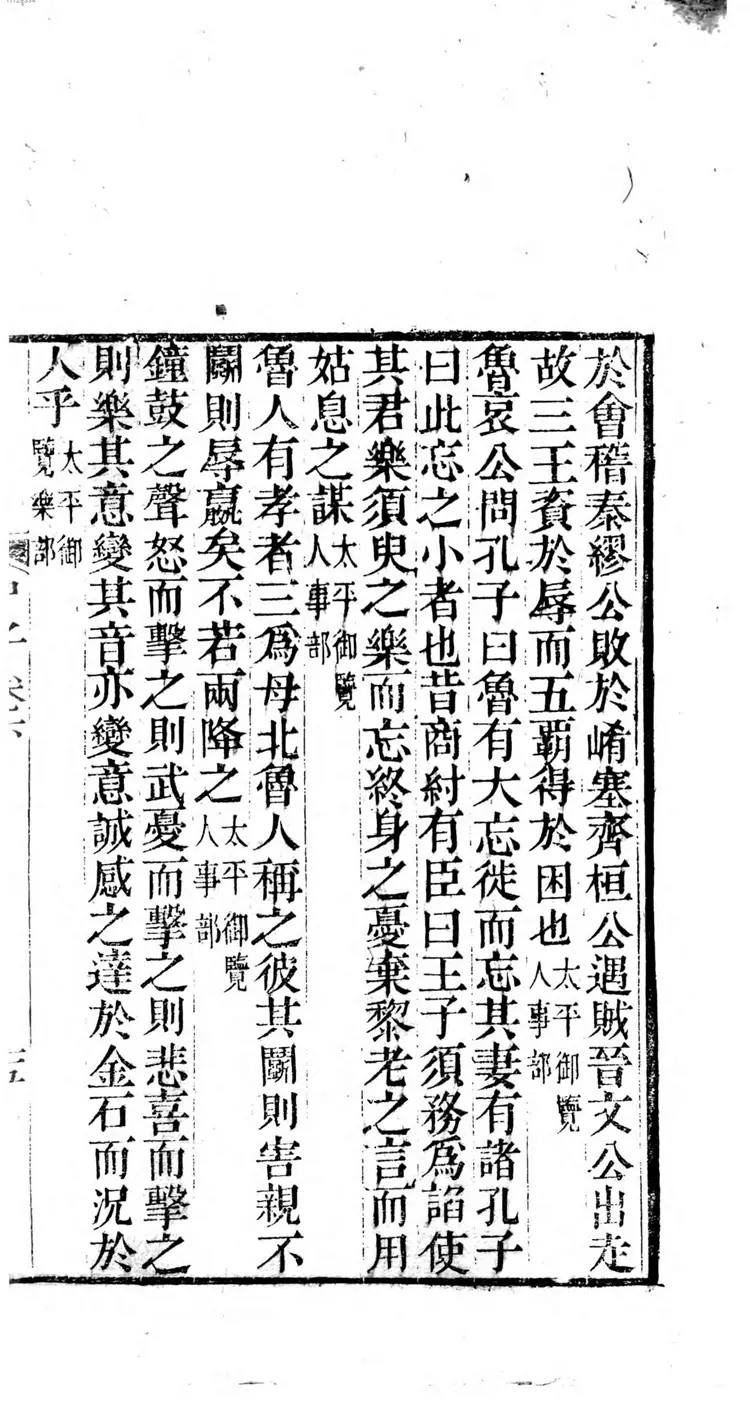 於會稽秦繆公敗於崤塞齊桓公遇賊晉文公出走
故三王資於辱而五覇得於困也太平御覽人事部
魯哀公問孔子曰魯有大忘徙而忘其妻有諸孔子
曰此忘之小者也昔商紂有臣曰王子須務爲謟使
其君樂須臾之樂而忘終身之憂棄黎老之言而用
姑息之謀太平御覽人事部
魯人有孝者三爲母北魯人稱之彼其鬬則害親不
鬬則辱羸矣不若兩降之太平御覽人事部
鐘鼓之聲怒而擊之則武憂而擊之則悲喜而擊之
則樂其意變其音亦變意誠感之達於金石而況於
人乎太平御覽樂部